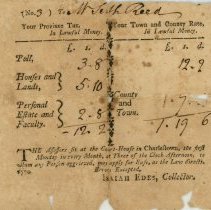 (No. 3) To Mr Seth Reed
Your Province Tax, Your Town and County Rate,
In Lawful Money. In Lawful Money.
£. s. d. £. s. d.
Poll, 3..8 12..9
Houses and
Lands, 5..10
County
Personal and
Estate and 2..8 Town.
Faculty.
12..2 1..19..6
THE Assessors sit at the Court-House in Charlestown, the first
Monday in every Month, at Three of the Clock Afternoon, to
any Person aggrieved,
Errors Excepted,
1770. ISAIAH EDES, Collector.